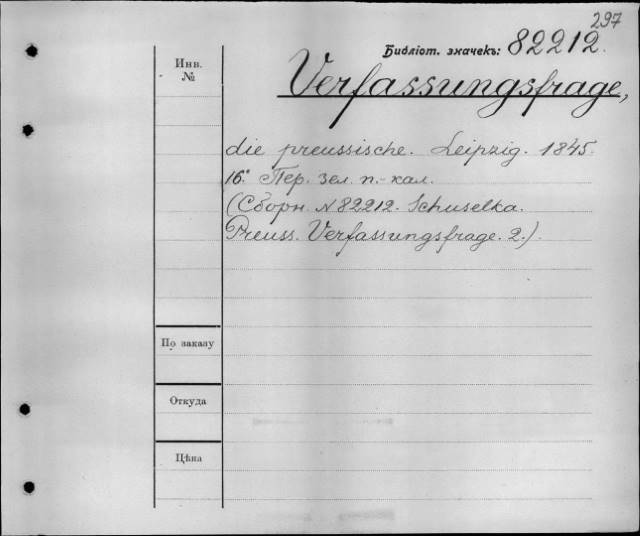 297
Библіот. значекъ: 82212.
Инв.
№
Verfassungsfrage,
die preussische. Leipzig. 1845.
16° Пер. зел. п.-кал.
(Сборн. N 82212. Schuselka.
Preuss. Verfassungsfrage. 2.)
По заказу
Откуда
Цѣна